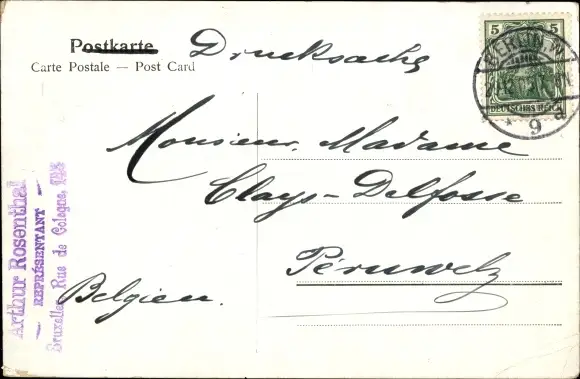 Postkarte Drucksache
Carte Postale — Post Card
5 5
DEUTSCHES REICH
BERLIN.W.
9 a
Monsieur, Madame
Clays-Delfosse
Péruwelz
Belgien.
Arthur Rosenthal
— REPRÉSENTANT —
Bruxelles, Rue de Cologne,